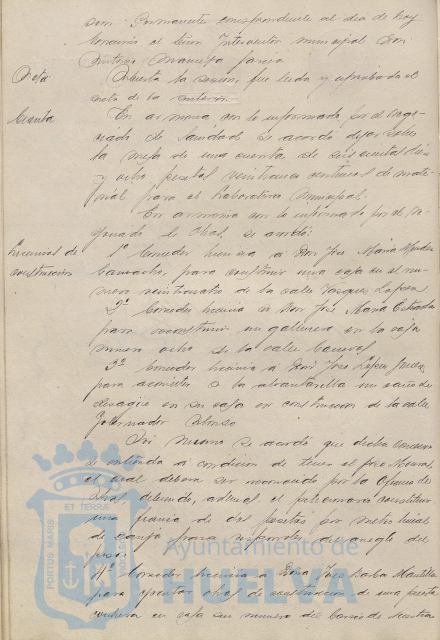 son. Permanente correspondiente al dia de hoy
el Señor Interventor municipal Don
Antonio García
Acta
Abierta la sesion, fue leida y aprobada el
acta de la anterior.
Cuenta
En armonia con lo informado por el Nego-
ciado de Sanidad se acordó dejar sobre
la mesa de una cuenta de seiscientas diez
y ocho pesetas centimos de mate-
rial para el Laboratorio Municipal.
En armonia con lo informado por el Ne-
gociado de Obras se acordó:
Licencias de
construccion
1º Conceder licencia a Don Jose Maria Mendez
Camacho, para construir una casa en el nu-
mero veinticuatro de la calle Vazquez Lopez
2º Conceder licencia a Don Jose Maria Estrada
para reconstruir un gallinero en la casa
numero ocho de la calle
3ª Conceder licencia a Don Jose Lopez
para acometer a la alcantarilla un caño de
desagüe en su casa en construccion de la calle
Gobernador Alonso
Asi mismo se acordó que dicha licencia
se entienda a condicion de tener el
el cual debera ser reconocido por la Oficina de
Obras, debiendo, ademas el peticionario constituir
una fianza de diez pesetas por metro lineal
de zanja para responder del arreglo del
piso.
4º Conceder licencia a Doña Barba Mantilla
para ejecutar obras de de una puerta
en casa sin numero del
PORTUS MARIS
ET TERRAE
CUSTODIA
Ayuntamiento de
HUELVA